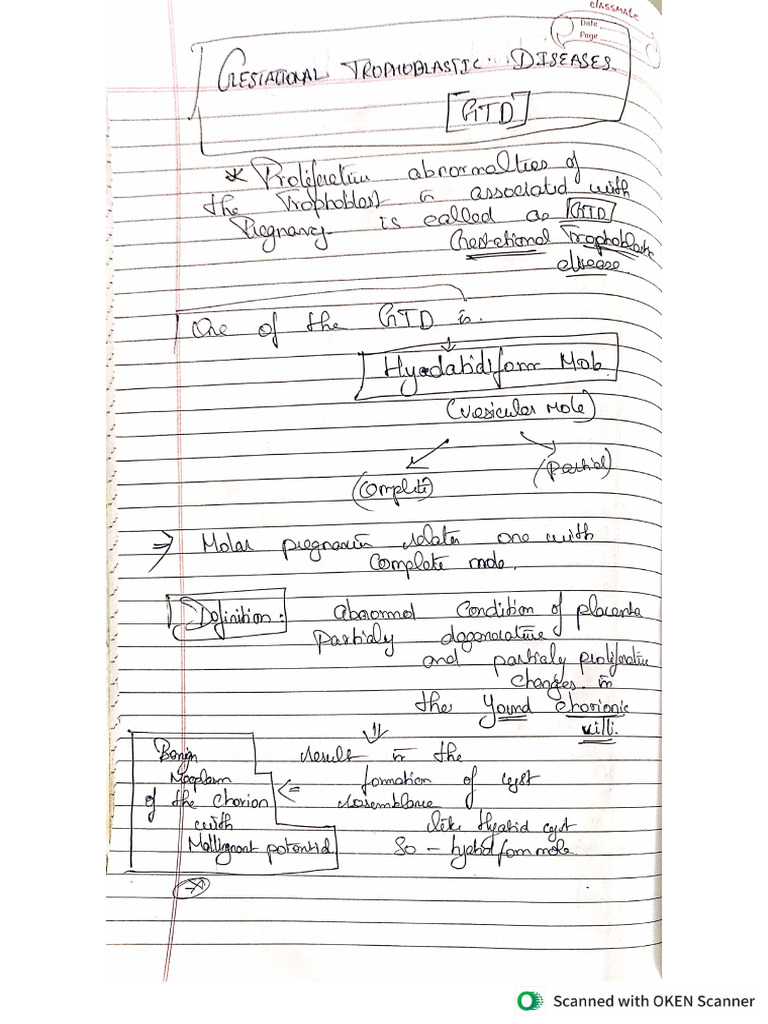 classmate
Date
Page
GESTATIONAL TROPHOBLASTIC DISEASES.
[GTD]
* Proliferative abnormalties of
the Trophoblast in associated with
Pregnancy is called as [GTD]
Gestational Trophoblastic
disease
One of the GTD is.
Hydatidiform Mole.
(vesicular mole)
(complete)
(Partial)
⇒ Molar pregnancy relates one with
complete mole.
Definition: abnormal condition of placenta
partialy degenerative
and partialy proliferative
changes in
the young chorionic
villi.
result in the
formation of cyst
resemblance
like Hyatid cyst
So - hyatid form mole.
Benign
Neoplasm
of the chorion
with
Mallignant potential
Scanned with OKEN Scanner